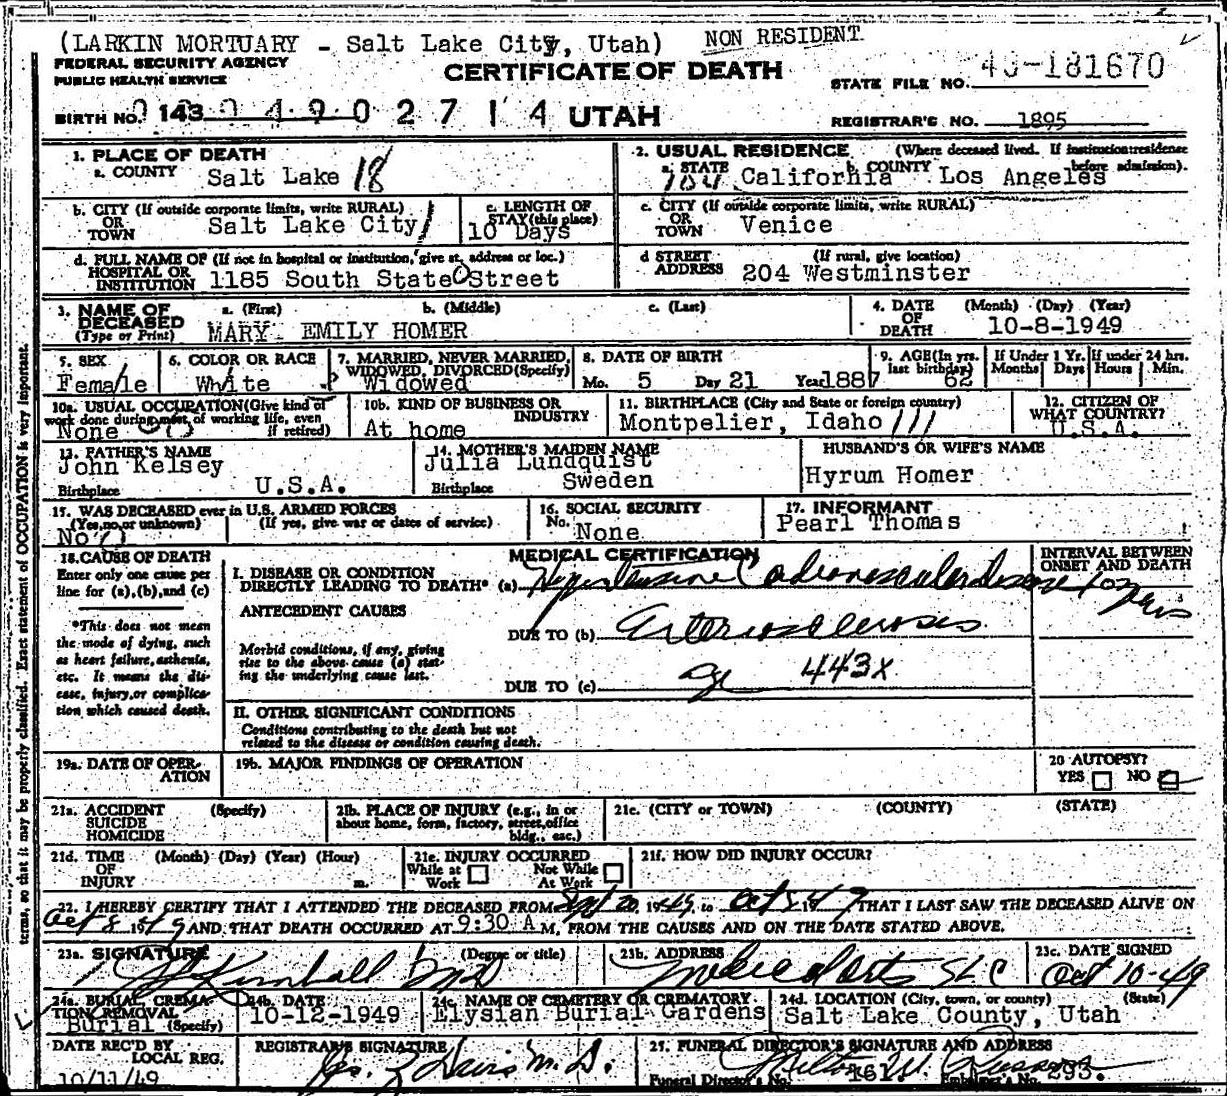 (LARKIN MORTUARY - Salt Lake City, Utah) NON RESIDENT
FEDERAL SECURITY AGENCY
PUBLIC HEALTH SERVICE
CERTIFICATE OF DEATH
STATE FILE NO. 49-181670
BIRTH NO. 143 49 0 2 7 1 4 UTAH
REGISTRAR'S NO. 1895
1. PLACE OF DEATH
a. COUNTY Salt Lake 18
2. USUAL RESIDENCE (Where deceased lived. If institution: residence before admission).
a. STATE 104 California b. COUNTY Los Angeles
b. CITY (If outside corporate limits, write RURAL)
OR
TOWN Salt Lake City
c. LENGTH OF
STAY (this place)
10 Days
c. CITY (If outside corporate limits, write RURAL)
OR
TOWN Venice
d. FULL NAME OF (If not in hospital or institution, give st. address or loc.)
HOSPITAL OR
INSTITUTION 1185 South State Street
d STREET (If rural, give location)
ADDRESS 204 Westminster
3. NAME OF DECEASED (Type or Print)
a. (First) b. (Middle) c. (Last)
MARY EMILY HOMER
4. DATE OF DEATH (Month) (Day) (Year)
10-8-1949
5. SEX
Female
6. COLOR OR RACE
White
7. MARRIED, NEVER MARRIED,
WIDOWED, DIVORCED (Specify)
Widowed
8. DATE OF BIRTH
Mo. 5 Day 21 Year 1887
9. AGE (In yrs. last birthday)
62
If Under 1 Yr.
Months Days
If under 24 hrs.
Hours Min.
10a. USUAL OCCUPATION (Give kind of
work done during most of working life, even
if retired)
None
10b. KIND OF BUSINESS OR
INDUSTRY
At home
11. BIRTHPLACE (City and State or foreign country)
Montpelier, Idaho 111
12. CITIZEN OF
WHAT COUNTRY?
U.S.A.
13. FATHER'S NAME
John Kelsey
Birthplace U.S.A.
14. MOTHER'S MAIDEN NAME
Julia Lundquist
Birthplace Sweden
HUSBAND'S OR WIFE'S NAME
Hyrum Homer
15. WAS DECEASED ever in U.S. ARMED FORCES
(Yes, no, or unknown) (If yes, give war or dates of service)
No
16. SOCIAL SECURITY
No. None
17. INFORMANT
Pearl Thomas
18. CAUSE OF DEATH
Enter only one cause per
line for (a), (b), and (c)
*This does not mean
the mode of dying, such
as heart failure, asthenia,
etc. It means the dis-
ease, injury, or complica-
tion which caused death.
MEDICAL CERTIFICATION
INTERVAL BETWEEN
ONSET AND DEATH
I. DISEASE OR CONDITION
DIRECTLY LEADING TO DEATH* (a) Hypertensive Cardiovascular disease 10 years
ANTECEDENT CAUSES
DUE TO (b) Arteriosclerosis
Morbid conditions, if any, giving
rise to the above cause (a) stat-
ing the underlying cause last.
DUE TO (c) age 443X
II. OTHER SIGNIFICANT CONDITIONS
Conditions contributing to the death but not
related to the disease or condition causing death.
19a. DATE OF OPER-
ATION
19b. MAJOR FINDINGS OF OPERATION
20 AUTOPSY?
YES NO
21a. ACCIDENT (Specify)
SUICIDE
HOMICIDE
21b. PLACE OF INJURY (e.g., in or
about home, form, factory, street, office
bldg., esc.)
21c. (CITY or TOWN) (COUNTY) (STATE)
21d. TIME (Month) (Day) (Year) (Hour)
OF
INJURY m.
21e. INJURY OCCURRED
While at Work Not While At Work
21f. HOW DID INJURY OCCUR?
22. I HEREBY CERTIFY THAT I ATTENDED THE DECEASED FROM Sept 20, 1949, to Oct 8 1949 THAT I LAST SAW THE DECEASED ALIVE ON
Oct 8 1949 AND THAT DEATH OCCURRED AT 9:30 A M, FROM THE CAUSES AND ON THE DATE STATED ABOVE.
23a. SIGNATURE (Degree or title)
Kimball MD
23b. ADDRESS
Medical Arts SLC
23c. DATE SIGNED
Oct 10-49
24a. BURIAL, CREMA-
TION, REMOVAL
Burial (Specify)
24b. DATE
10-12-1949
24c. NAME OF CEMETERY OR CREMATORY
Elysian Burial Gardens
24d. LOCATION (City, town, or county) (State)
Salt Lake County, Utah
DATE REC'D BY
LOCAL REG.
10/11/49
REGISTRAR'S SIGNATURE
Davis M.D.
25. FUNERAL DIRECTOR'S SIGNATURE AND ADDRESS
Funeral Director's No. 161. Embalmer's No. 293.
terms, so that it may be properly classified. Exact statement of OCCUPATION is very important.